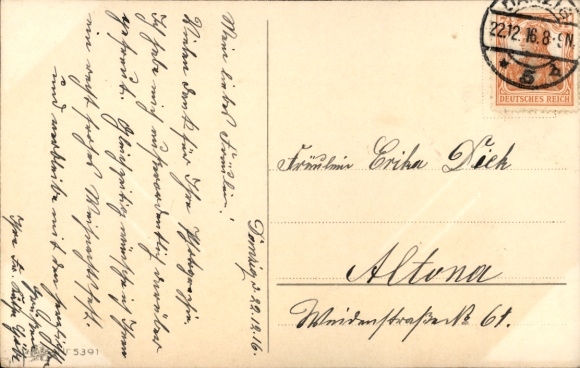 Danzig, d. 22.12.16.
Mein liebes Fräulein!
Vielen Dank für Ihre Photografie.
Ich habe mich außerordentlich darüber
gefreut. Gleichzeitig wünsche ich Ihnen
ein recht frohes Weihnachtsfest.
und verbleibe mit den herzlichsten
Grüßen
Ihr
5391
DANZIG
22.12.16.8-9N
* 5 b
DEUTSCHES REICH
Fräulein Erika Dieck
Altona
Weidenstraße No 61.